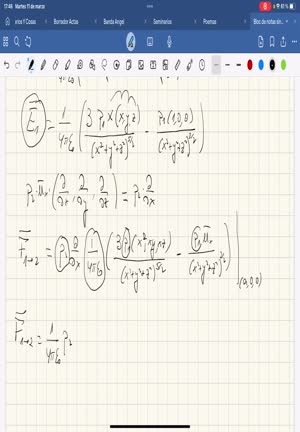 17:48 Martes 11 de marzo 61 %
rios Y Cosas Borrador Actas Banda Angel Seminarios Poemas Bloc de notas sin...
E₁ = 1/4πε₀ ( 3·p₁ x (x,y,z) / (x²+y²+z²)^5/2 − p₁(1,0,0) / (x²+y²+z²)^3/2 )
p₂·ūₓ·(∂/∂x, ∂/∂y, ∂/∂z) = p₂·∂/∂x
F₁→₂ = p₂ ∂/∂x (1/4πε₀) ( 3p₁(x², xy, xz) / (x²+y²+z²)^5/2 − p₁·ūₓ / (x²+y²+z²)^3/2 ) |
F₁→₂ = 1/4πε₀ p₂